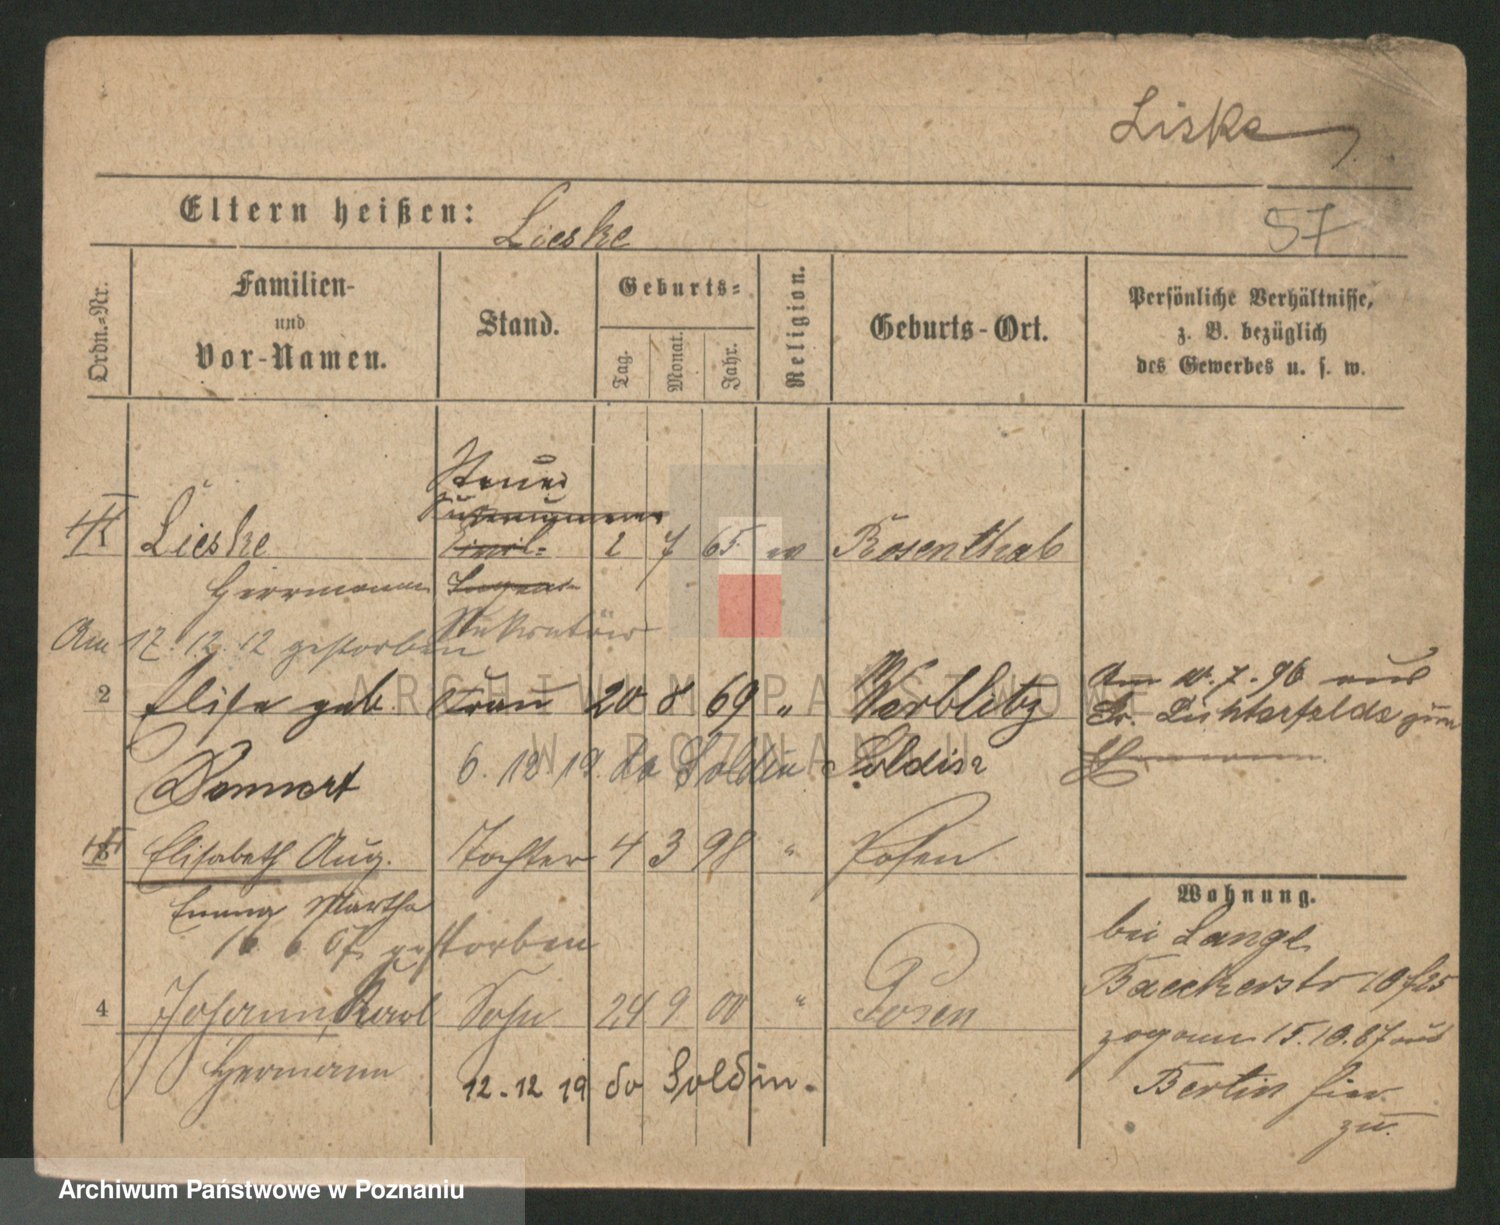 Liske
Eltern heißen: Lieske
57
Ordn.-Nr.
Familien- und Vor-Namen.
Stand.
Geburts-
Tag.
Monat.
Jahr.
Religion.
Geburts-Ort.
Persönliche Verhältnisse, z. B. bezüglich des Gewerbes u. s. w.
Steuer
Lieske 2 7 65 Rosenthal
Herrmann
Sekretär
Am 17.12.12 gestorben
2 Elise geb. Frau 20 8 69 " Werblitz
Am 10.7.96 aus
Gr. Lichterfelde
Dennert 6. 12 19. do Soldin Soldin
Elisabeth Aug. Tochter 4 3 98 " Posen
Emma Martha
16 6 07 gestorben
4 Johann Karl Sohn 24 9 00 " Posen
Hermann
12.12 19 do Soldin.
Wohnung.
bei Lange
Baeckerstr
zog am 15.10.87 aus
Berlin hier
zu.
ARCHIWUM PAŃSTWOWE
W POZNANIU
Archiwum Państwowe w Poznaniu